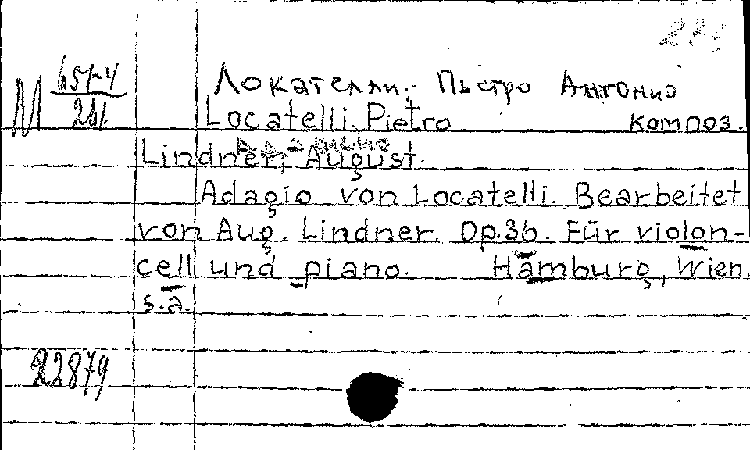 Локателли. Пьетро Антонио
М 657-4
Locatelli, Pietro композ.
Lindner, August.
Adagio von Locatelli. Bearbeitet
von Aug. Lindner. Op.36. Für violon-
cell und piano. Hamburg, Wien.
s.a.
22879